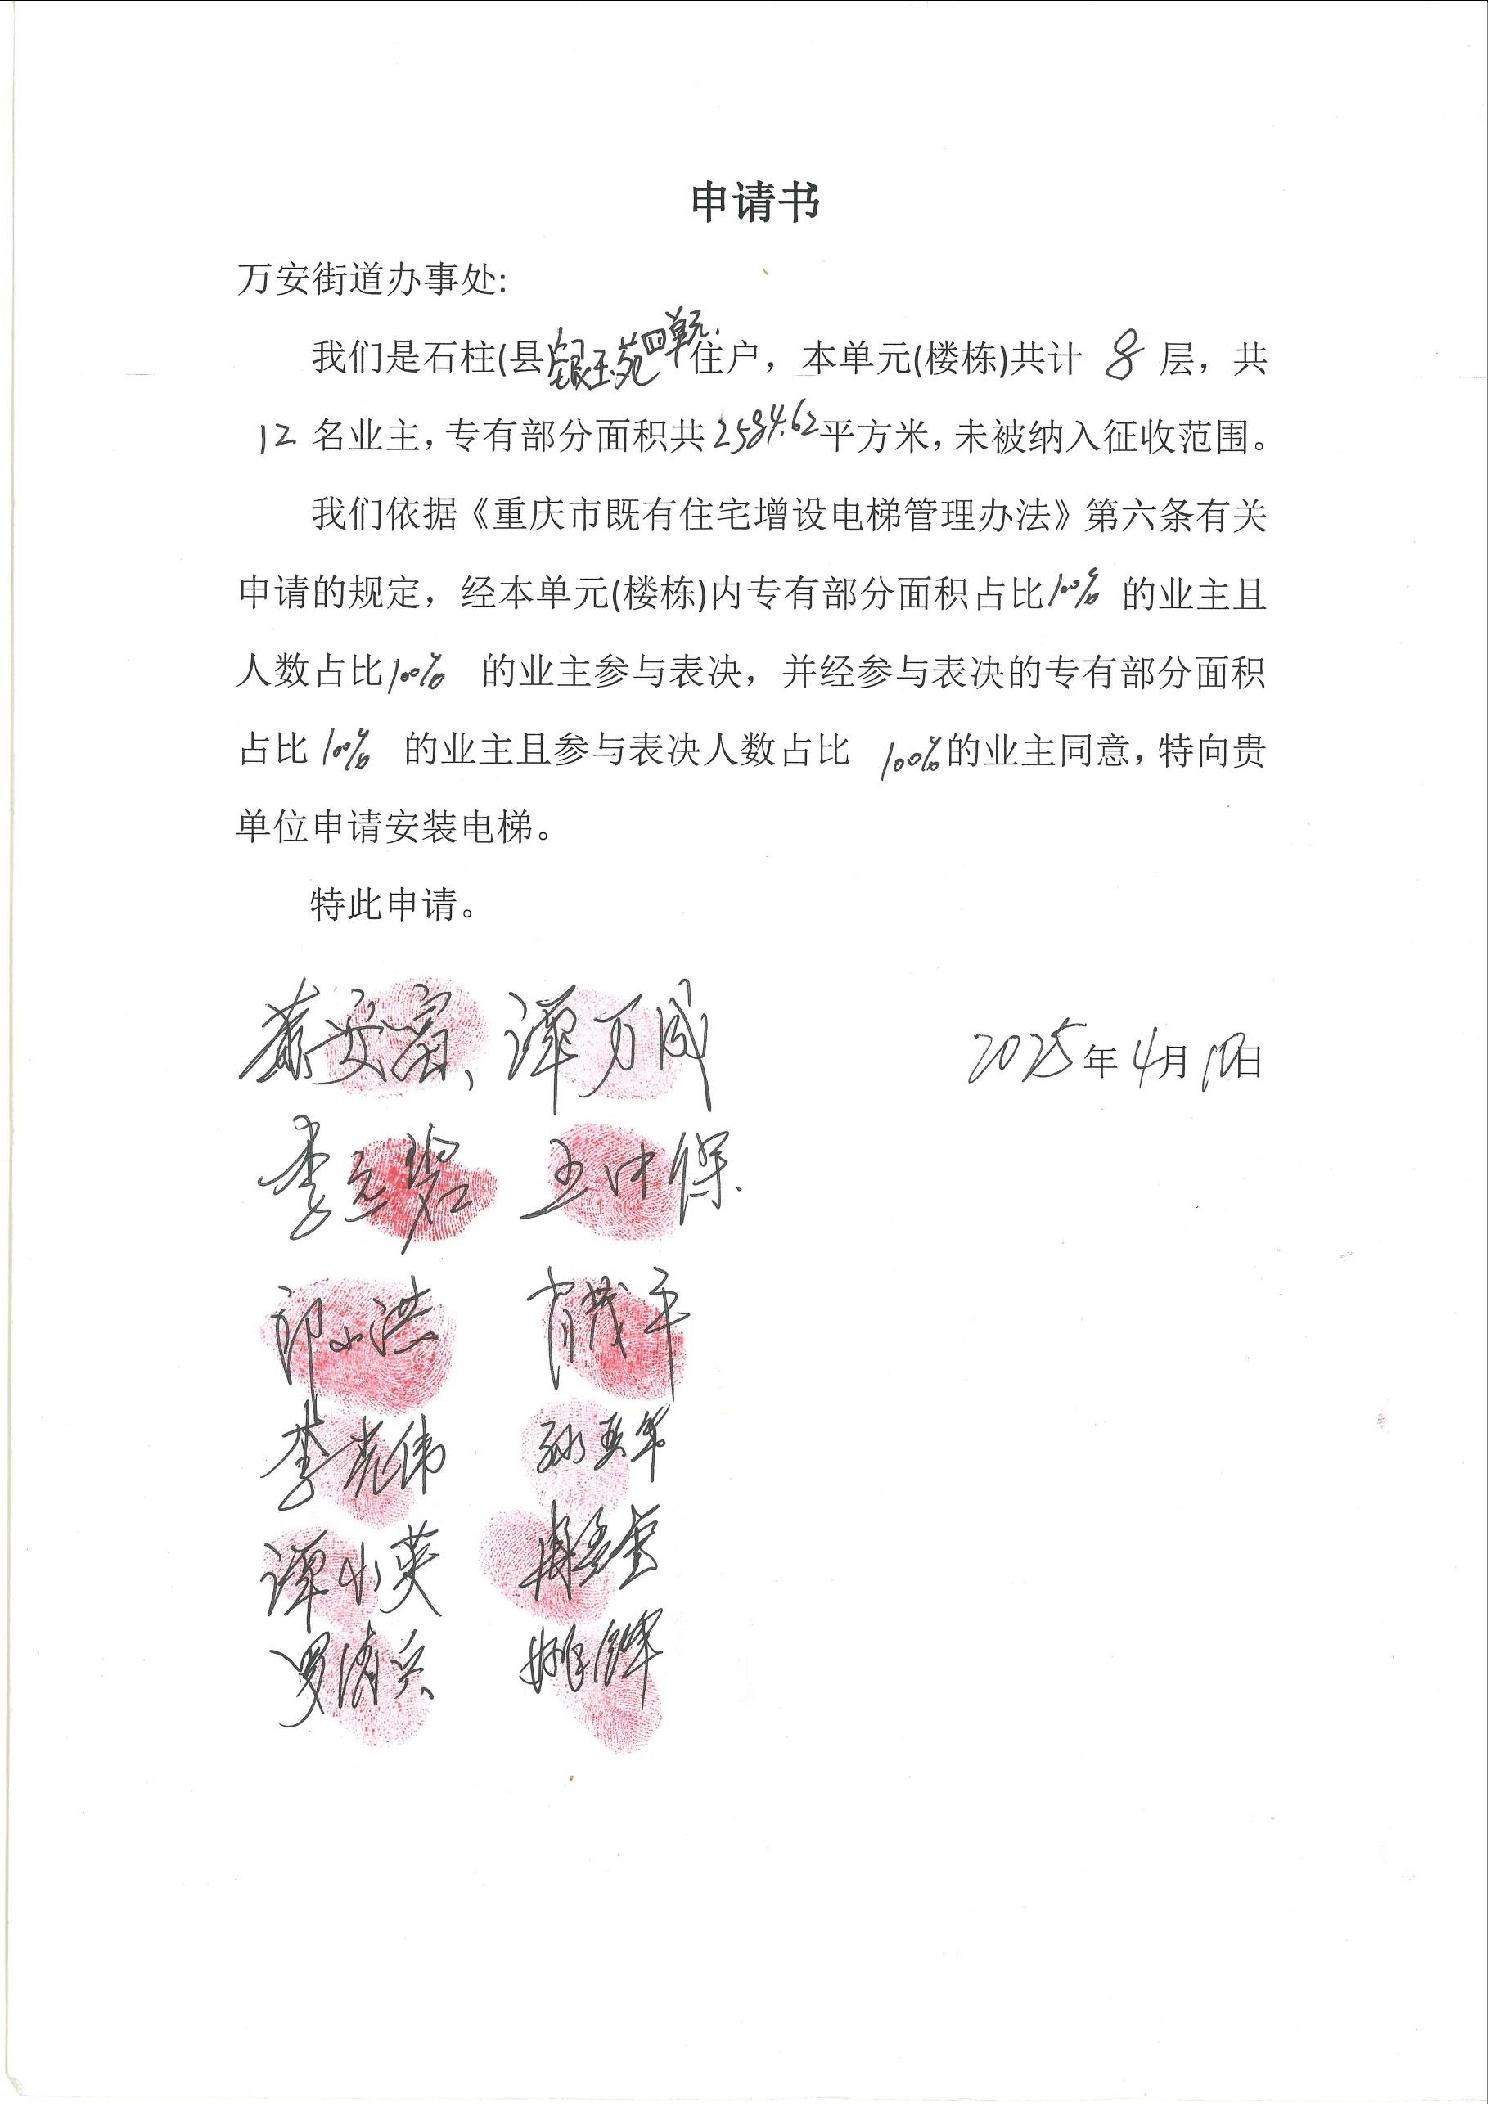 申请书
万安街道办事处:
我们是石柱(县)银玉苑四单元住户，本单元(楼栋)共计 8 层，共
12 名业主，专有部分面积共2584.62平方米，未被纳入征收范围。
我们依据《重庆市既有住宅增设电梯管理办法》第六条有关
申请的规定，经本单元(楼栋)内专有部分面积占比100% 的业主且
人数占比100% 的业主参与表决，并经参与表决的专有部分面积
占比 100% 的业主且参与表决人数占比 100%的业主同意，特向贵
单位申请安装电梯。
特此申请。
谭万成
2025年4月 日
王中保.
肖茂平
李光伟
谭小英